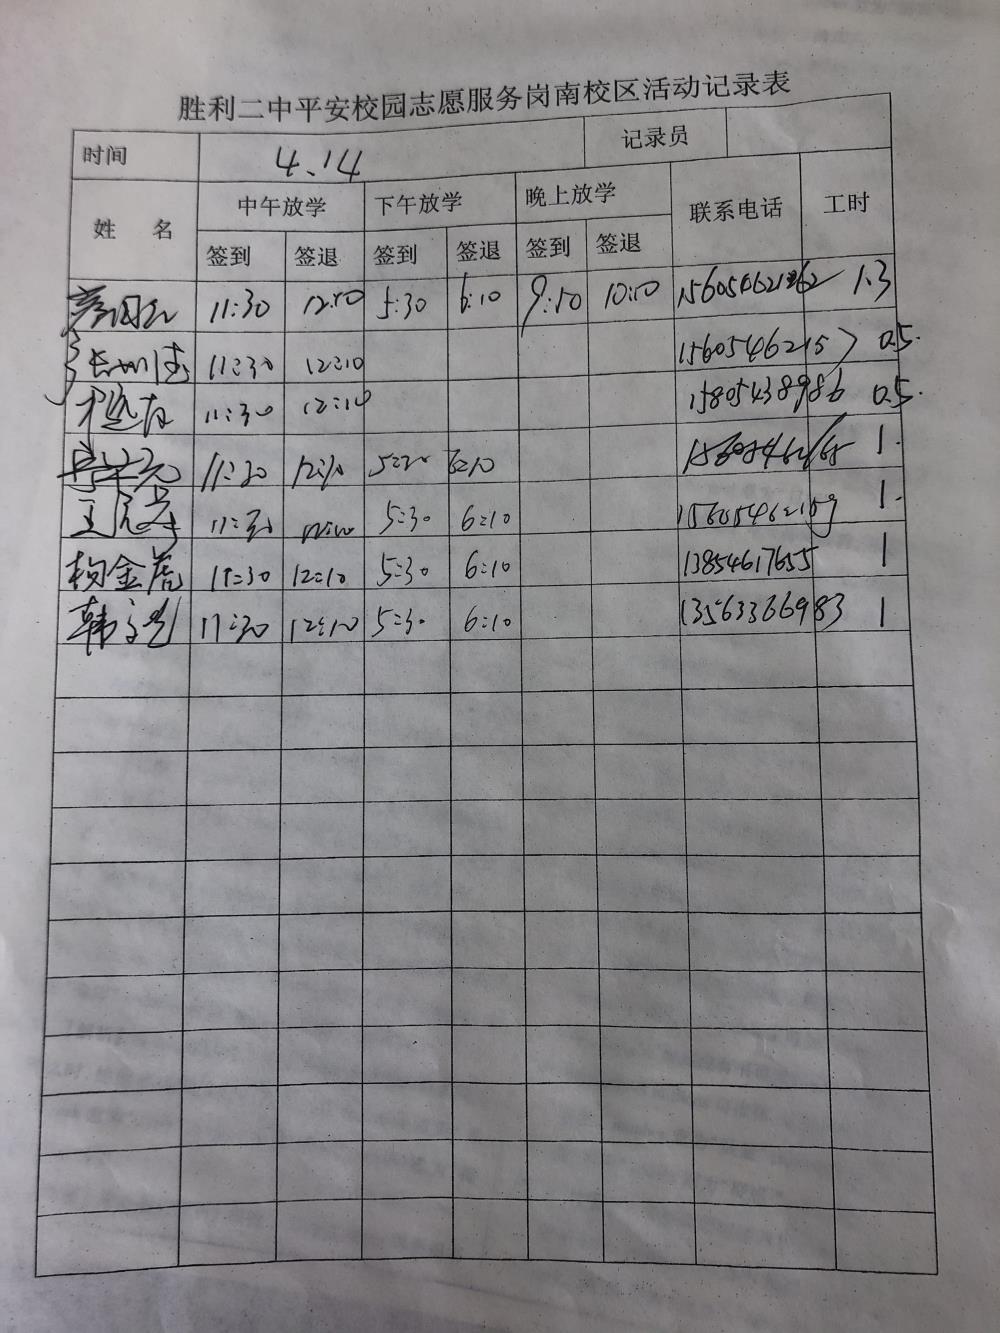 胜利二中平安校园志愿服务岗南校区活动记录表
时间 4.14 记录员
姓 名 中午放学 下午放学 晚上放学 联系电话 工时
签到 签退 签到 签退 签到 签退
11:30 12:10 5:30 6:10 9:50 10:10 1.3
11:30 12:10 0.5
11:30 12:10 15805438986 0.5
11:30 12:10 6:10 1
王 11:30 5:30 6:10 1
金虎 11:30 12:10 5:30 6:10 13854617655 1
韩 11:30 12:10 5:30 6:10 13563366983 1